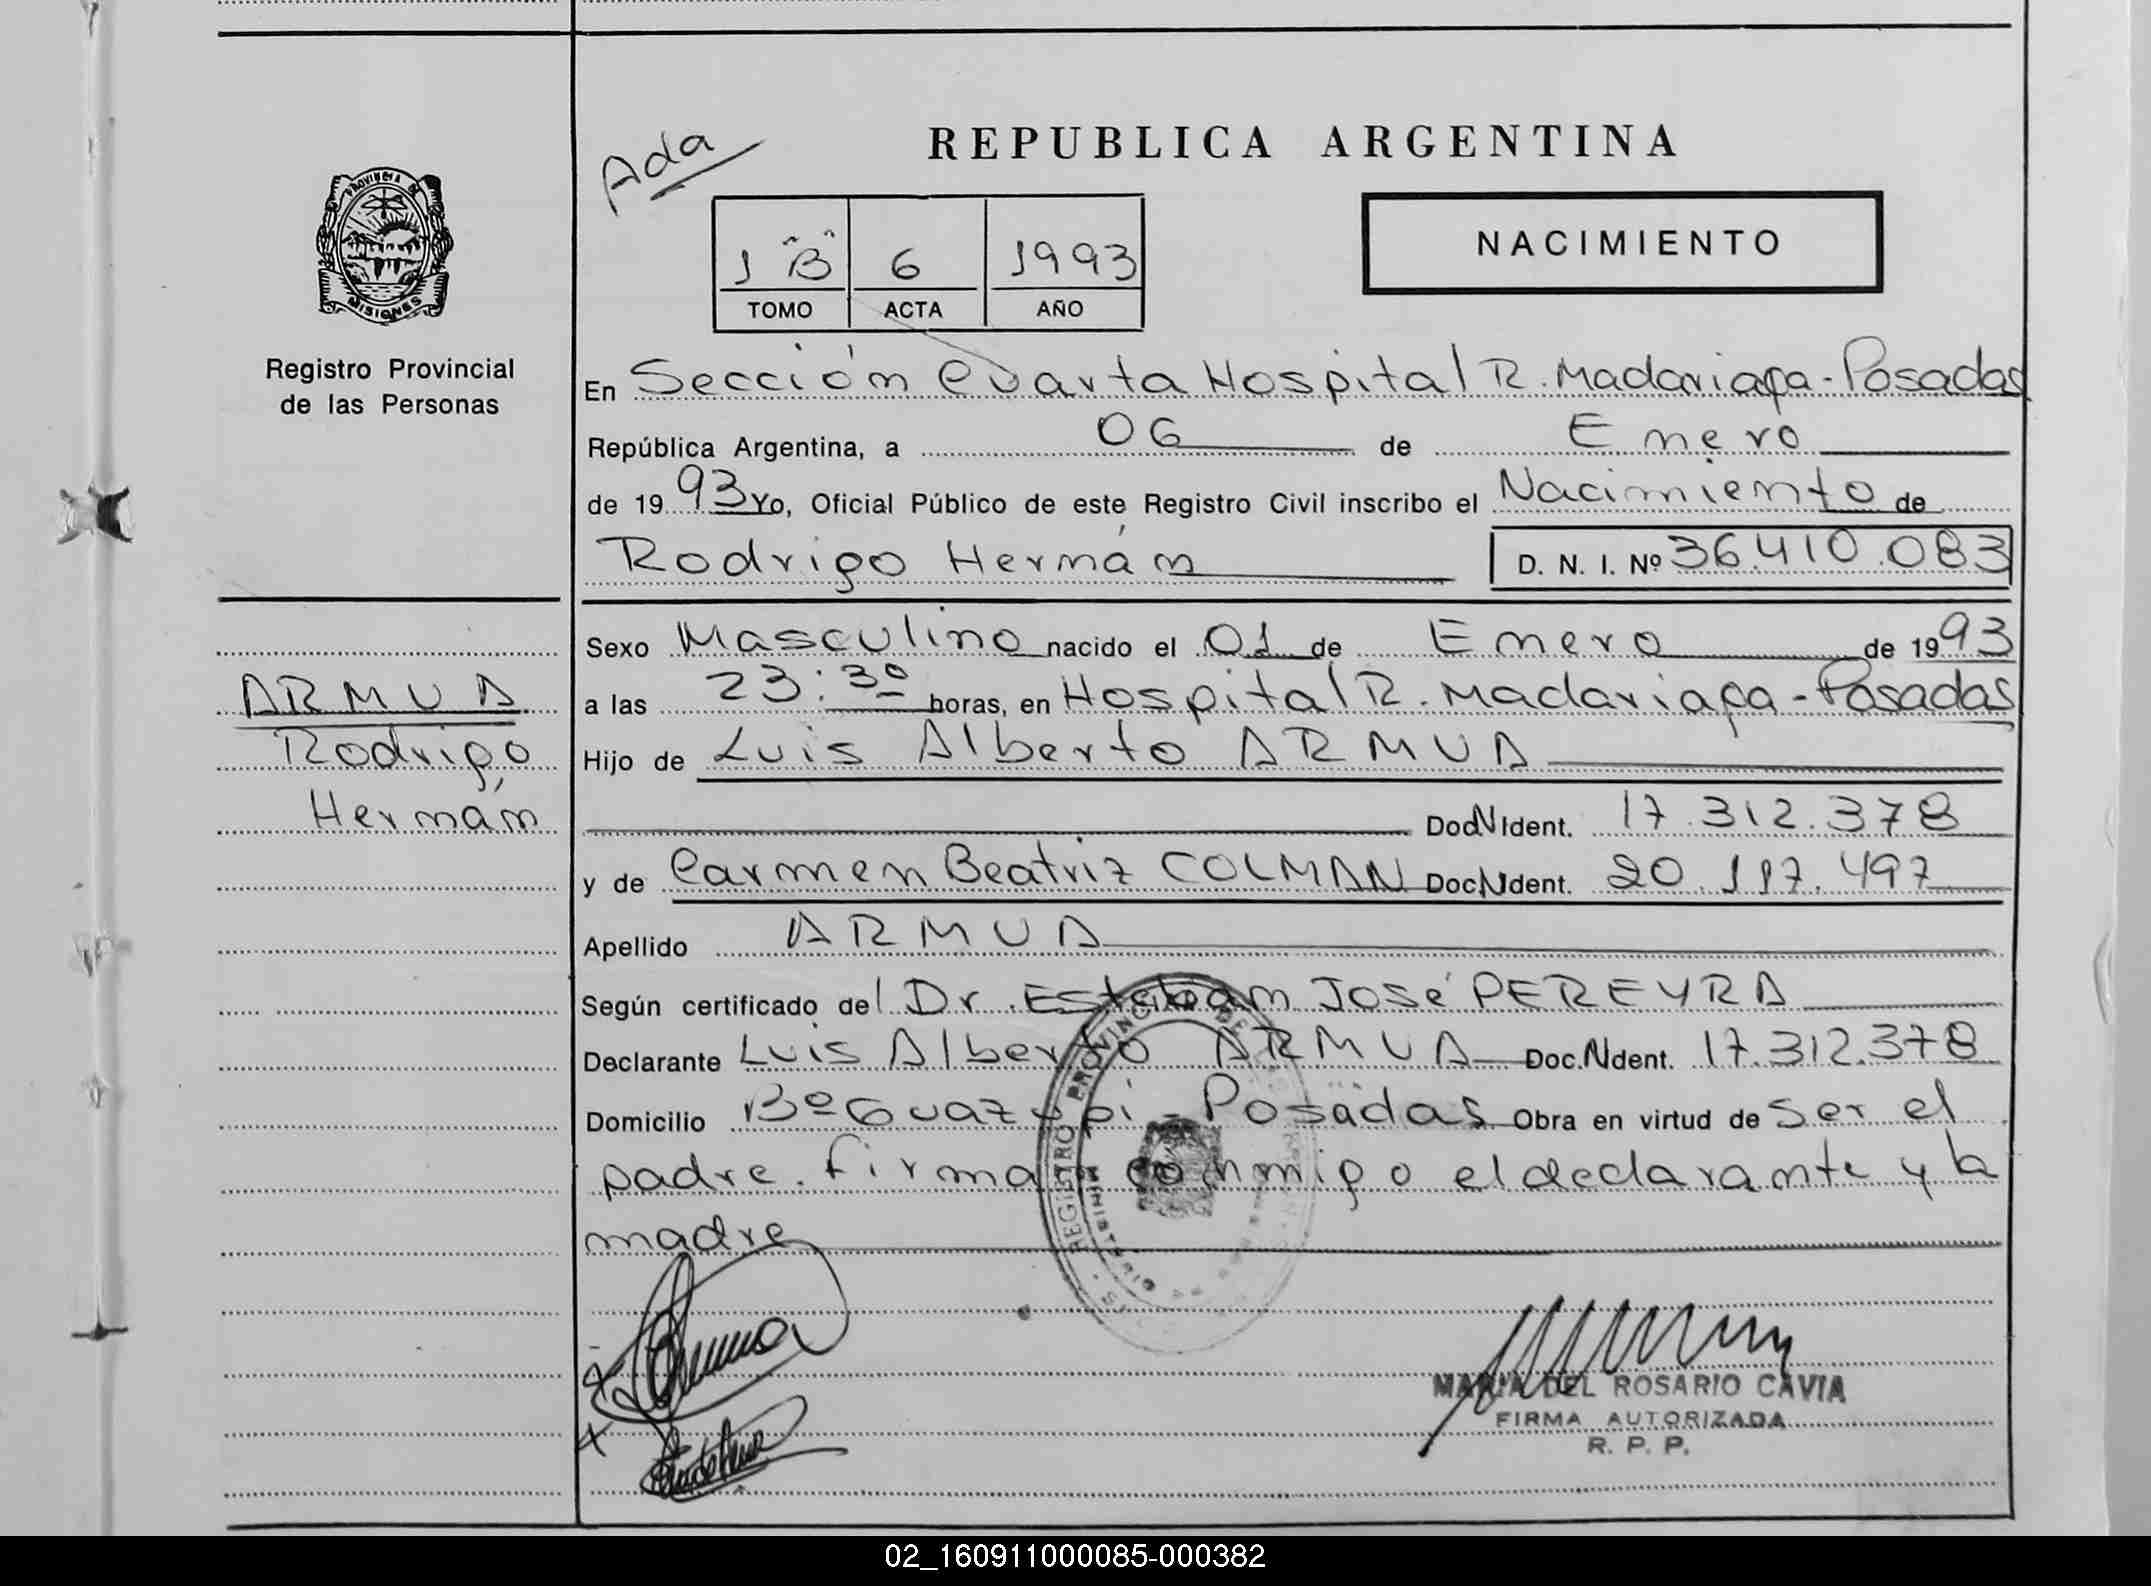 Ada
REPUBLICA ARGENTINA
NACIMIENTO
1 "B" 6 1993
TOMO ACTA AÑO
PROVINCIA DE
MISIONES
Registro Provincial
de las Personas
En Sección Cuarta Hospital R. Madariaga - Posadas
República Argentina, a 06 de Enero
de 1993 Yo, Oficial Público de este Registro Civil inscribo el Nacimiento de
Rodrigo Hernán D. N. I. Nº 36.410.083
Sexo Masculino nacido el 01 de Enero de 1993
a las 23:30 horas, en Hospital R. Madariaga - Posadas
Hijo de Luis Alberto ARMUA
Doc N Ident. 17.312.378
y de Carmen Beatriz COLMAN Doc N Ident. 20.117.497
Apellido ARMUA
Según certificado del Dr. Esteban José PEREYRA
Declarante Luis Alberto ARMUA Doc. N Ident. 17.312.378
Domicilio Bº Guazupi - Posadas Obra en virtud de ser el
padre. Firman conmigo el declarante y la
madre
ARMUA
Rodrigo
Hernán
REGISTRO PROVINCIAL DE
MINISTERIO
MARIA DEL ROSARIO CAVIA
FIRMA AUTORIZADA
R. P. P.
02_160911000085-000382